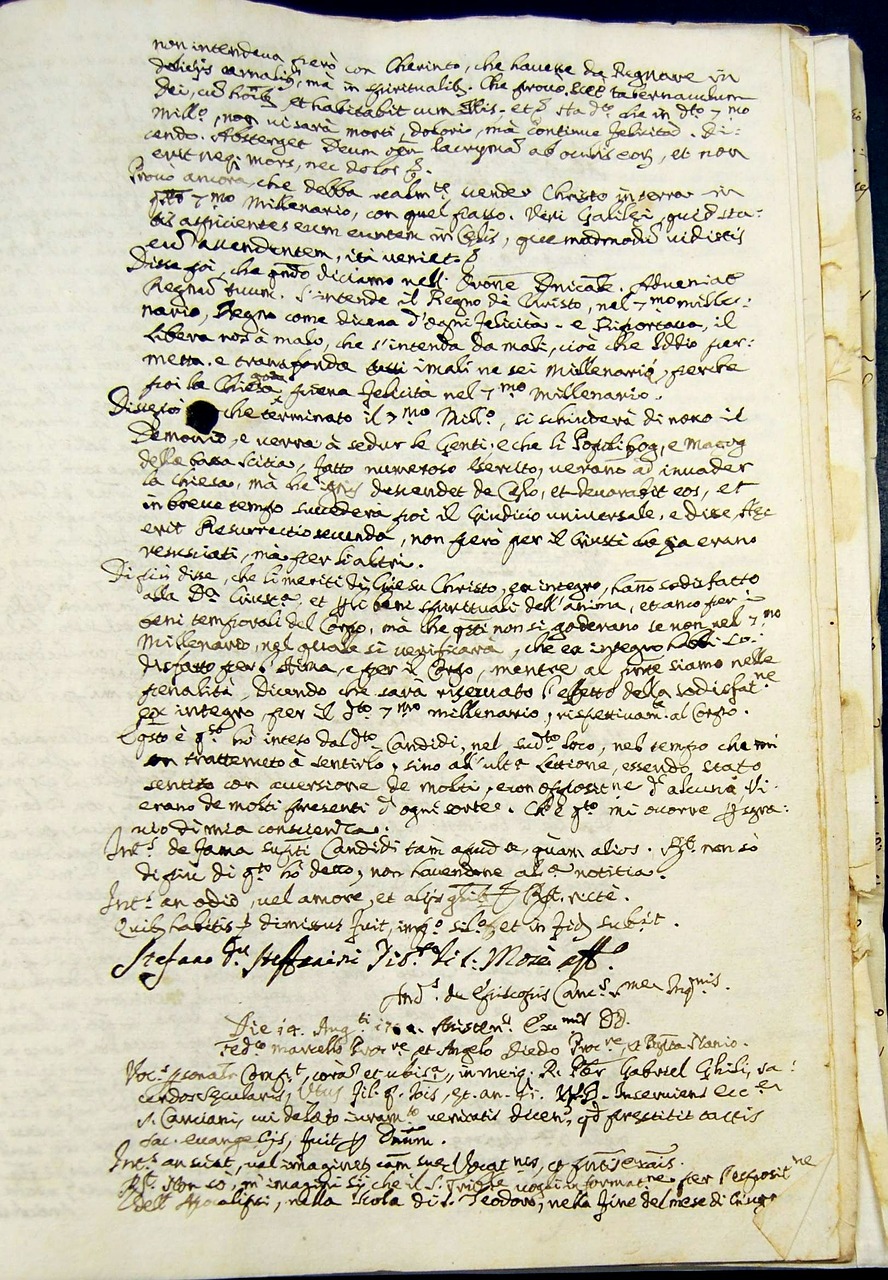 non intendeva però con Cherinto, che havesse da Regnare in
delitijs carnalib, mà in spiritualib. Che provò. Ecce tabernaculum
Dei, cũ hoib et habitabit cum illis. et che in dto 7mo
Millo, non vi sarà morti, dolori, mà continua felicità. Di:
cendo. Absterget Deum oem lacrymas ab oculis eorũ, et non
erit neq mors, nec dolor
Provò ancora, che debba realmte vender Christo in terra in
qsto 7mo Millenario, con quel passo. Viri Galilei, quid sta:
tis aspicientes eum euntem in Celis, quemadmodũ vidistis
eũ ascendentem, ità veniet
Disse poi, che qndo diciamo nell' Orone Dnicale. Adveniat
Regnũ tuum. S'intende il Regno di Christo, nel 7mo mille:
nario, Regno come diceva d'ogni felicità. e Riportava, il
Libera nos à malo, che s'intenda da mali, cioè che Iddio per:
metta e transfonda tutti i mali ne sei Millenarij, perche
poi la Chiesa piena felicità nel 7mo Millenario.
Disse poi che terminato il 7mo Millo, si schiuderà di novo il
Demonio, e verrà à sedur le Genti, e che li Popoli Gog, e Magog
della bassa Scitia, fatto numeroso esercito, verano ad invader
la Chiesa, mà che ignis descendet de Celo, et devorabit eos, et
in breve tempo succederà poi il Giudicio universale, e disse Hec
erit Resurrectio secunda, non però per il Giusti che già erano
resusciati, mà per li altri.
Di più disse, che li meriti di Giesu Christo, ex integro, hano sodisfatto
alla Da Giusta, et p li beni spirituali dell'anima, et anco per i
beni temporali del Corpo, mà che qsti non si goderano se non nel 7mo
Millenario, nel quale si verificarà, che ex integro habbi so:
disfatto per l'Anima, e per il Corpo, mentre al pnte siamo nelle
penalità, dicendo che sarà riservato l'effetto della sodisfatne
ex integro, per il dto 7mo millenario, rispettivamte al Corpo.
Qsto è qto hò inteso dal dto Candidi, nel sudto loco, nel tempo che mi
son trattenuto à sentirlo, sino all'ulta Lettione, essendo stato
sentito con aversione da molti, e con opposine d'alcuni. Vi
erano de molti presenti d'ogni sorte. Che è qto mi ocorre p sgra:
vio di mia conscienza.
Ints de fama supti Candidi tam apud se, quam alios. Rt. non sò
di più di qto hò detto, non havendone alta notitia.
Ints an odio, vel amore, et alijs Rt. rectè.
Quib habitis dimissus fuit, impo silo et in fid subst.
Stefano Stefanini affo
Ands de Episcopis Cancs
Die 14. Augti Assistenti Exmis DD.
Fedco Marcello Procre, et Angelo Diedo Procre,
Vocs psonalr Compt, corã et ubi sa, in meiq. R. Pter Gabriel Ghisi, sa:
cerdos secularis, fil. q. Iois, et. an. Inserviens eccae
S. Canciani, cui delato iuramto veritatis dicen, qd prestitit tactis
sac. evangelijs, fuit p Dnum.
Ints an sciat, vel imaginet cam sue Vocatnis, et pntis exais.
Rt. Non sò, m'imagini si che il S. Tribunle vogli informatne per l'esposit ne
dell' Apocalipsi, nella scola di S. Teodoro, nella fine del mese di